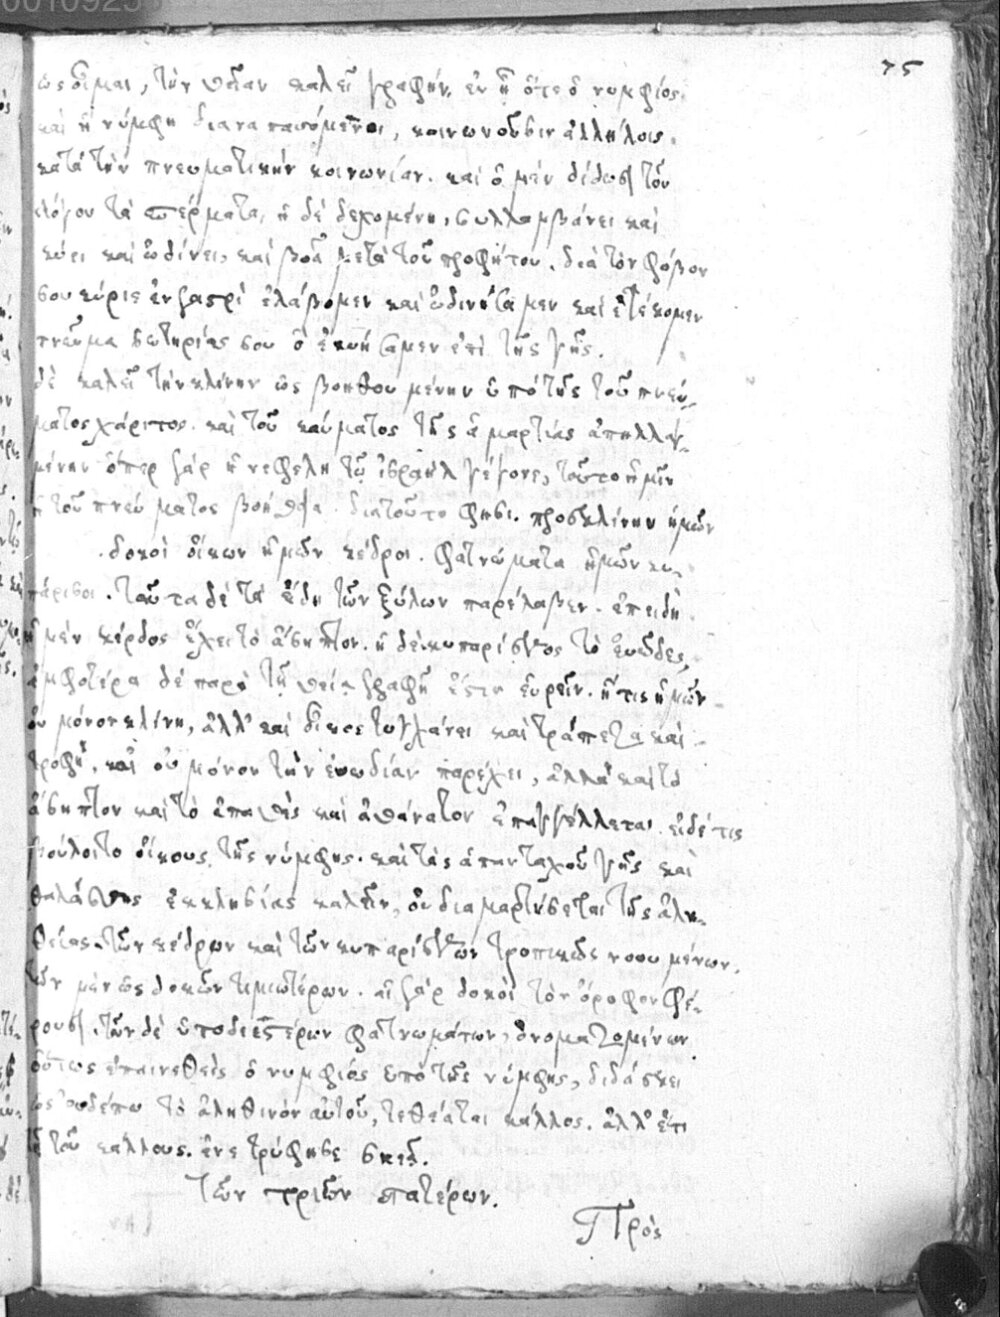 0010925
75
ὡς οἶμαι, τὴν θείαν καλεῖ γραφήν, ἐν ᾗ ὅ τε ὁ νυμφίος
καὶ ἡ νύμφη διαναπαυόμενοι, κοινωνοῦσιν ἀλλήλοις.
κατὰ τὴν πνευματικὴν κοινωνίαν. καὶ ὁ μὲν δίδωσι τοῦ
λόγου τὰ σπέρματα, ἡ δὲ δεχομένη, συλλαμβάνει καὶ
κύει καὶ ὠδίνει, καὶ βοᾷ μετὰ τοῦ προφήτου. διὰ τὸν φόβον
σου κύριε ἐν γαστρὶ ἐλάβομεν καὶ ὠδινήσαμεν καὶ ἐτέκομεν
πνεῦμα σωτηρίας σου ὃ ἐκυήσαμεν ἐπὶ τῆς γῆς.
δὲ καλεῖ τὴν κλίνην ὡς βοηθουμένην ὑπὸ τῆς τοῦ πνεύ-
ματος χάριτος. καὶ τοῦ καύματος τῆς ἁμαρτίας ἀπηλλαγ-
μένην ὅπερ γὰρ ἡ νεφέλη τῷ ἰσραὴλ γέγονε, τοῦτο ἡμῖν
ἡ τοῦ πνεύματος βοήθεια. διατοῦτο φησι. πρὸς κλίνην ἡμῶν
. δοκοὶ οἴκων ἡμῶν κέδροι. φατνώματα ἡμῶν κυ-
πάρισοι. ταῦτα δὲ τὰ εἴδη τῶν ξύλων παρέλαβεν. ἐπειδὴ
ἡ μὲν κέρδος ἔχει τὸ ἄσηπτον. ἡ δὲ κυπαρίσσος τὸ εὐῶδες,
ἀμφότερα δὲ παρὰ τῇ θείᾳ γραφῇ ἔστιν εὑρεῖν. ἥτις ἡμῶν
οὐ μόνον κλίνη, ἀλλὰ καὶ οἶκος τυγχάνει καὶ τράπεζα καὶ
τροφὴ, καὶ οὐ μόνον τὴν εὐωδίαν παρέχει, ἀλλὰ καὶ τὸ
ἄσηπτον καὶ τὸ ἀπαθὲς καὶ ἀθάνατον ἐπαγγέλλεται. εἰ δέ τις
βούλοιτο οἴκους τῆς νύμφης. καὶ τὰς ἁπανταχοῦ γῆς καὶ
θαλάσσης ἐκκλησίας καλεῖν, οὐ διαμαρτήσεται τῆς ἀλη-
θείας. τῶν κέδρων καὶ τῶν κυπαρίσσων τροπικῶς νοουμένων.
τῶν μὲν ὡς δοκῶν τιμιωτέρων. αἱ γὰρ δοκοὶ τὸν ὄροφον φέ-
ρουσι. τῶν δὲ ὑποδεεστέρων φατνωμάτων, ὀνομαζομένων.
οὕτως ἐπαινεθεὶς ὁ νυμφίος ὑπὸ τῆς νύμφης, διδάσκει
ὡς οὐδέπω τὸ ἀληθινὸν αὐτοῦ, τεθέαται κάλλος. ἀλλ' ἔτι
τοῦ κάλλους. ἐνετρύφησε σκιᾷ.
Τῶν τριῶν πατέρων.
Πρὸς